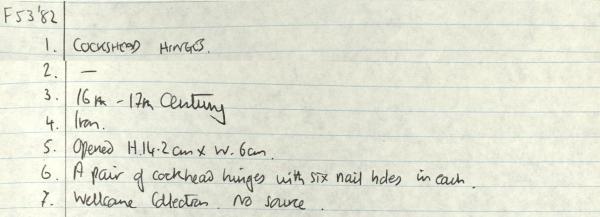 F53'82
1. COCKSHEAD HINGES.
2. —
3. 16th - 17th Century
4. Iron.
5. Opened H.14.2cm x W. 6cm.
6. A pair of cockhead hinges with six nail holes in each.
7. Wellcome Collection. No source.